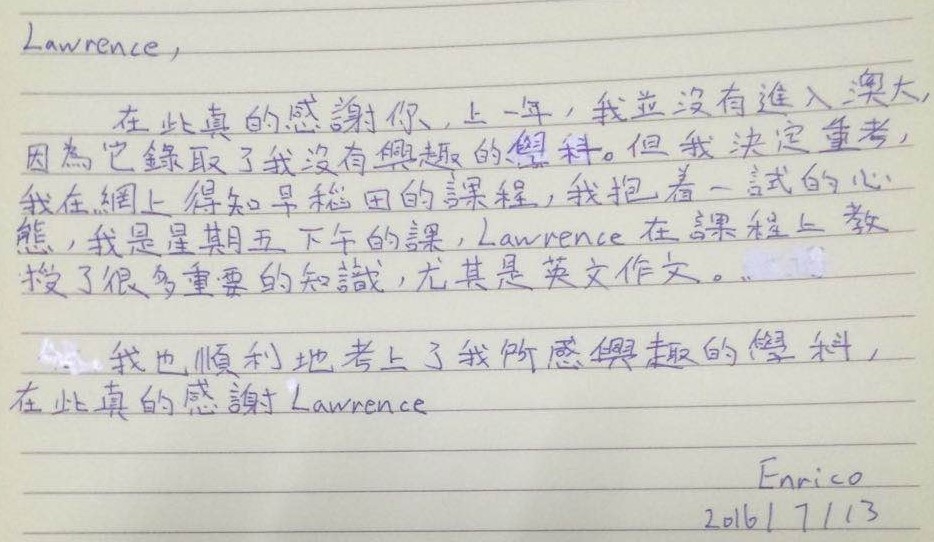 Lawrence,
在此真的感謝你,上一年,我並沒有進入澳大,
因為它錄取了我沒有興趣的學科。但我決定重考,
我在網上得知早稻田的課程,我抱着一試的心
態,我是星期五下午的課,Lawrence在課程上教
授了很多重要的知識,尤其是英文作文。
我也順利地考上了我所感興趣的學科,
在此真的感謝Lawrence
Enrico
2016/7/13